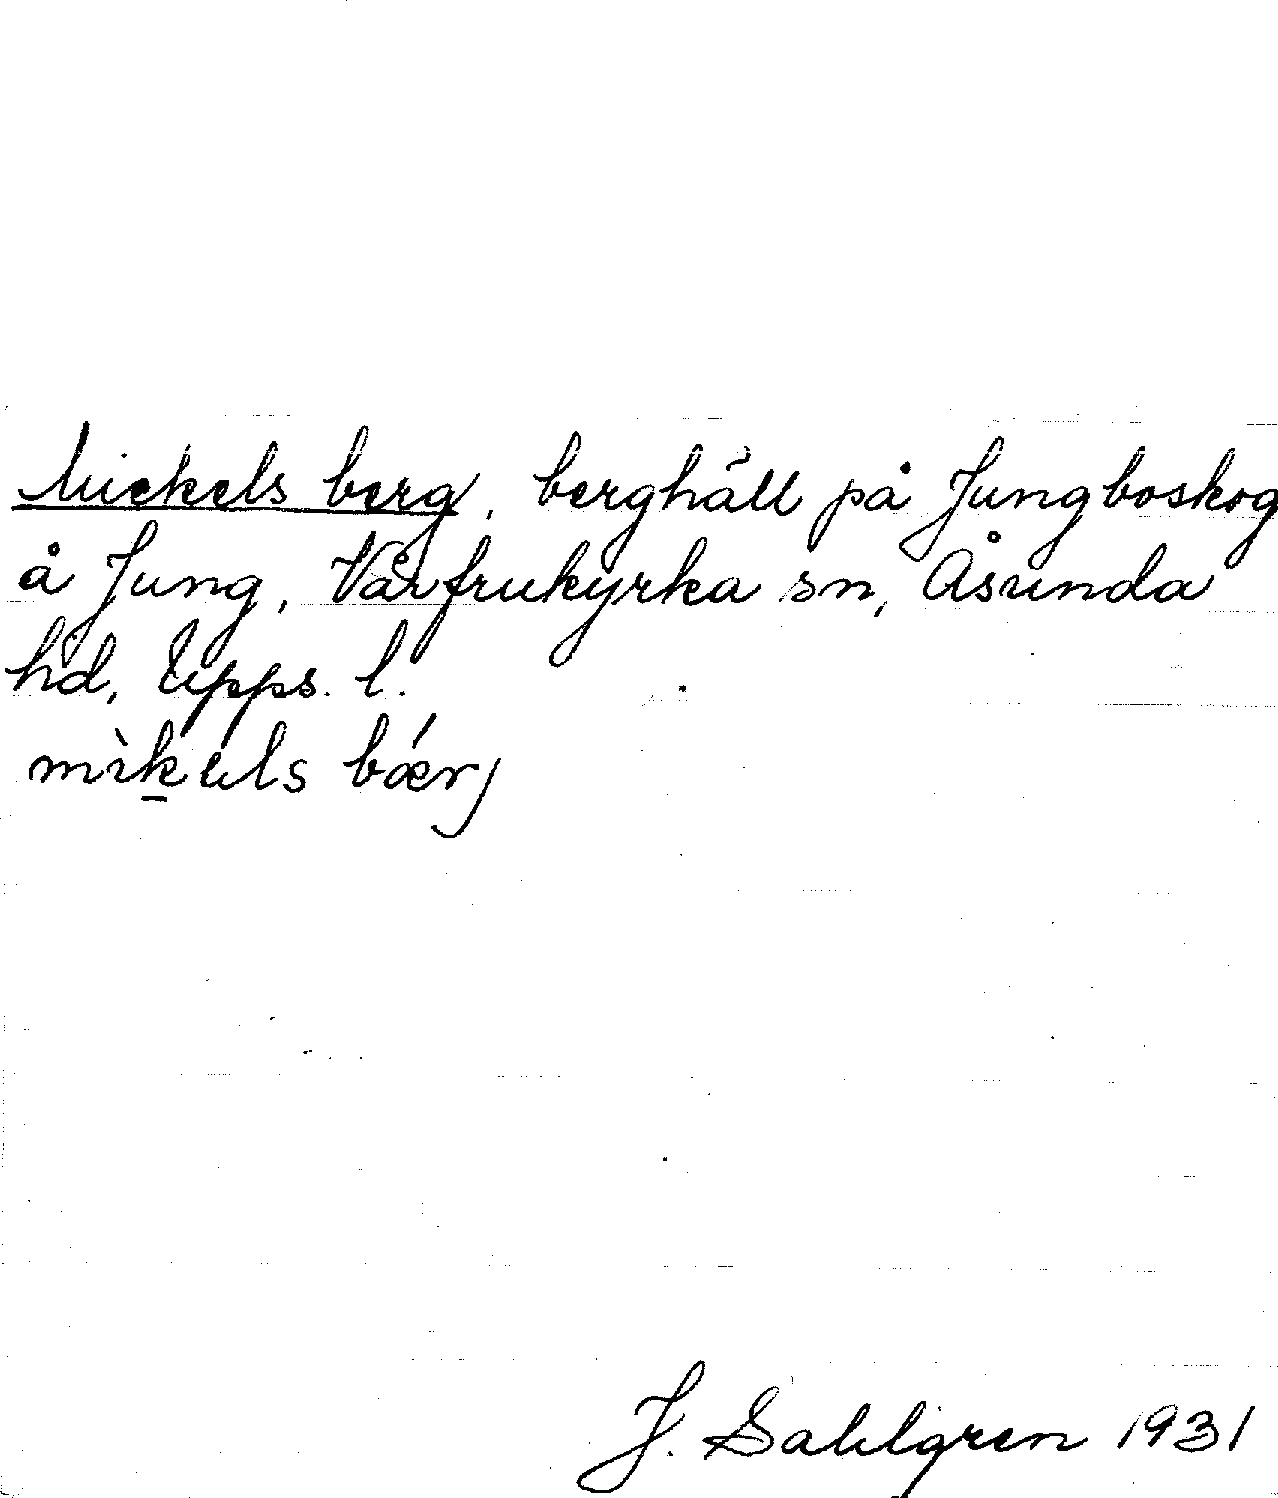 Mickels berg, berghäll på Jungboskog
å Jung, Vårfrukyrka sn, Åsunda
hd, Upps. l.
mìk̲ɯls bǽrj
J. Sahlgren 1931